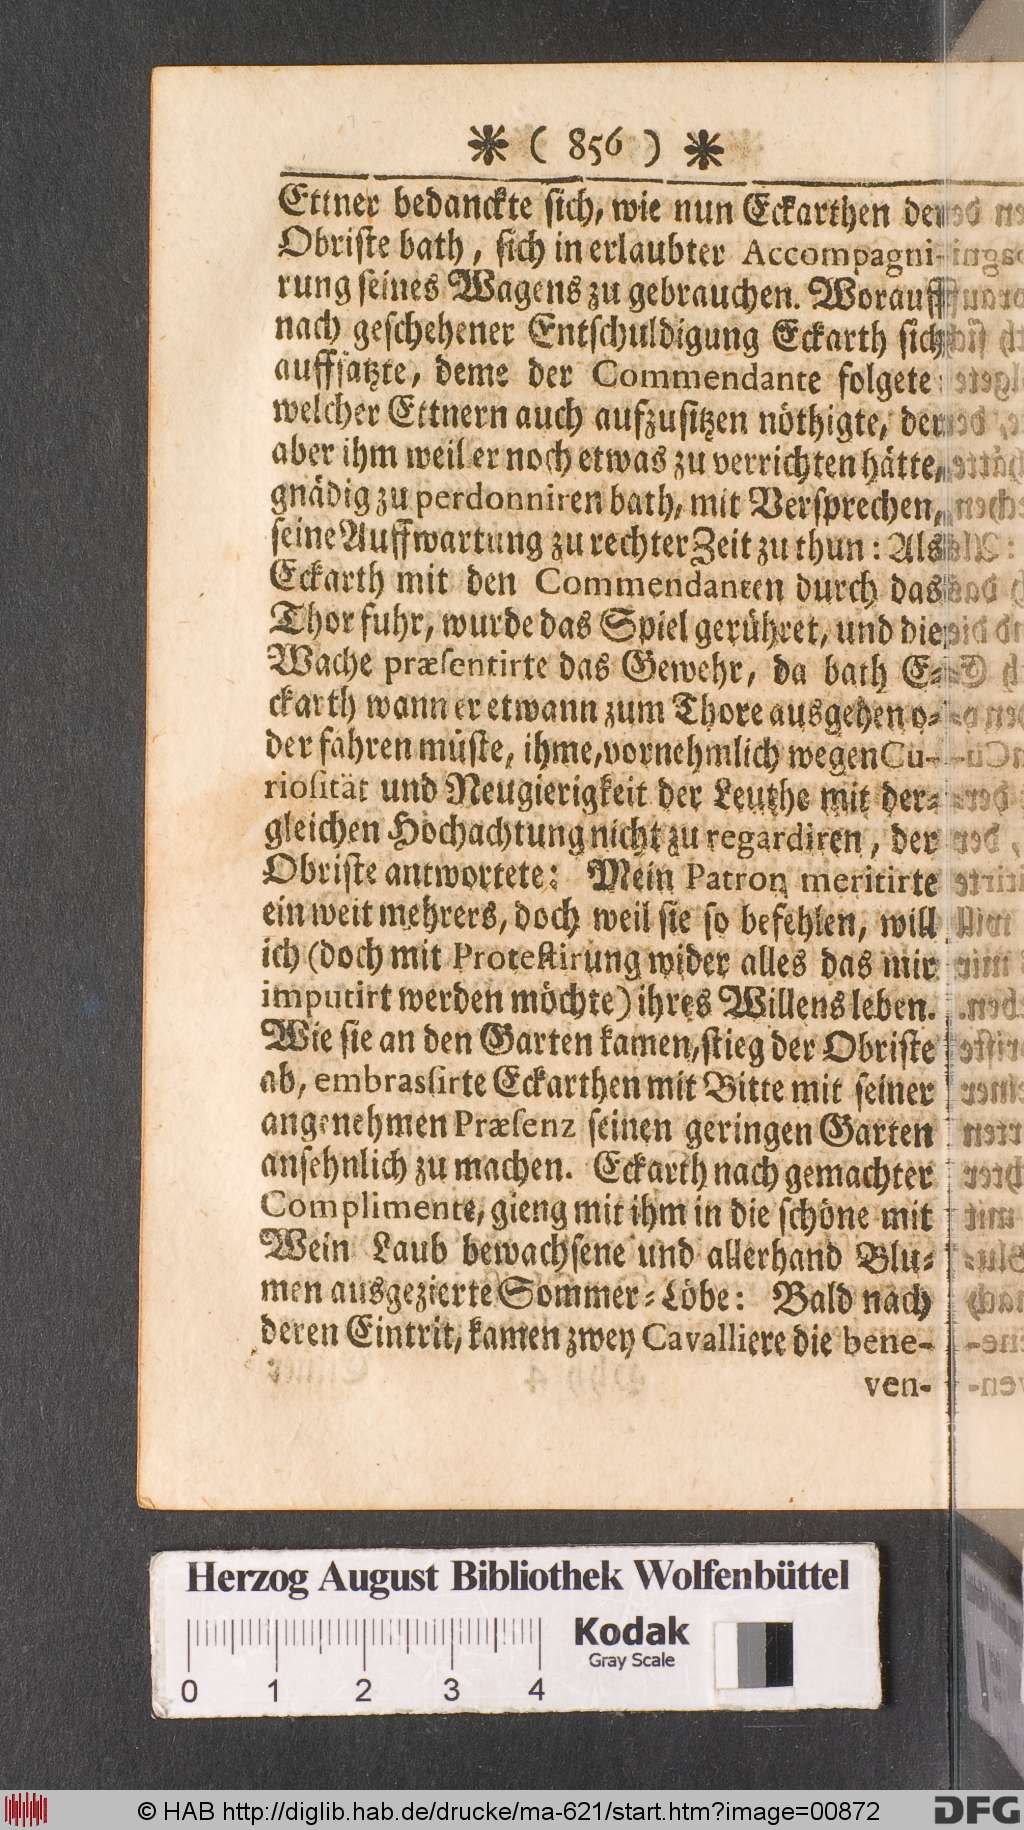 ❋ ( 856 ) ❋
Ettner bedanckte sich, wie nun Eckarthen der
Obriste bath, sich in erlaubter Accompagni-
rung seines Wagens zu gebrauchen. Worauff
nach geschehener Entschuldigung Eckarth sich
auffsatzte, deme der Commendante folgete
welcher Ettnern auch aufzusitzen nöthigte, der
aber ihm weil er noch etwas zu verrichten hätte,
gnädig zu perdonniren bath, mit Versprechen,
seine Auffwartung zu rechter Zeit zu thun: Als
Eckarth mit den Commendanten durch das
Thor fuhr, wurde das Spiel gerühret, und die
Wache præsentirte das Gewehr, da bath E-
ckarth wann er etwann zum Thore ausgehen o-
der fahren müste, ihme, vornehmlich wegen Cu-
riosität und Neugierigkeit der Leuthe mit der-
gleichen Hochachtung nicht zu regardiren, der
Obriste antwortete: Mein Patron meritirte
ein weit mehrers, doch weil sie so befehlen, will
ich (doch mit Protestirung wider alles das mir
imputirt werden möchte) ihres Willens leben.
Wie sie an den Garten kamen, stieg der Obriste
ab, embrassirte Eckarthen mit Bitte mit seiner
angenehmen Præsenz seinen geringen Garten
ansehnlich zu machen. Eckarth nach gemachter
Complimente, gieng mit ihm in die schöne mit
Wein Laub bewachsene und allerhand Blu-
men ausgezierte Sommer-Löbe: Bald nach
deren Eintrit, kamen zwey Cavalliere die bene-
ven-
Herzog August Bibliothek Wolfenbüttel
Kodak
Gray Scale
0 1 2 3 4
© HAB http://diglib.hab.de/drucke/ma-621/start.htm?image=00872
DFG